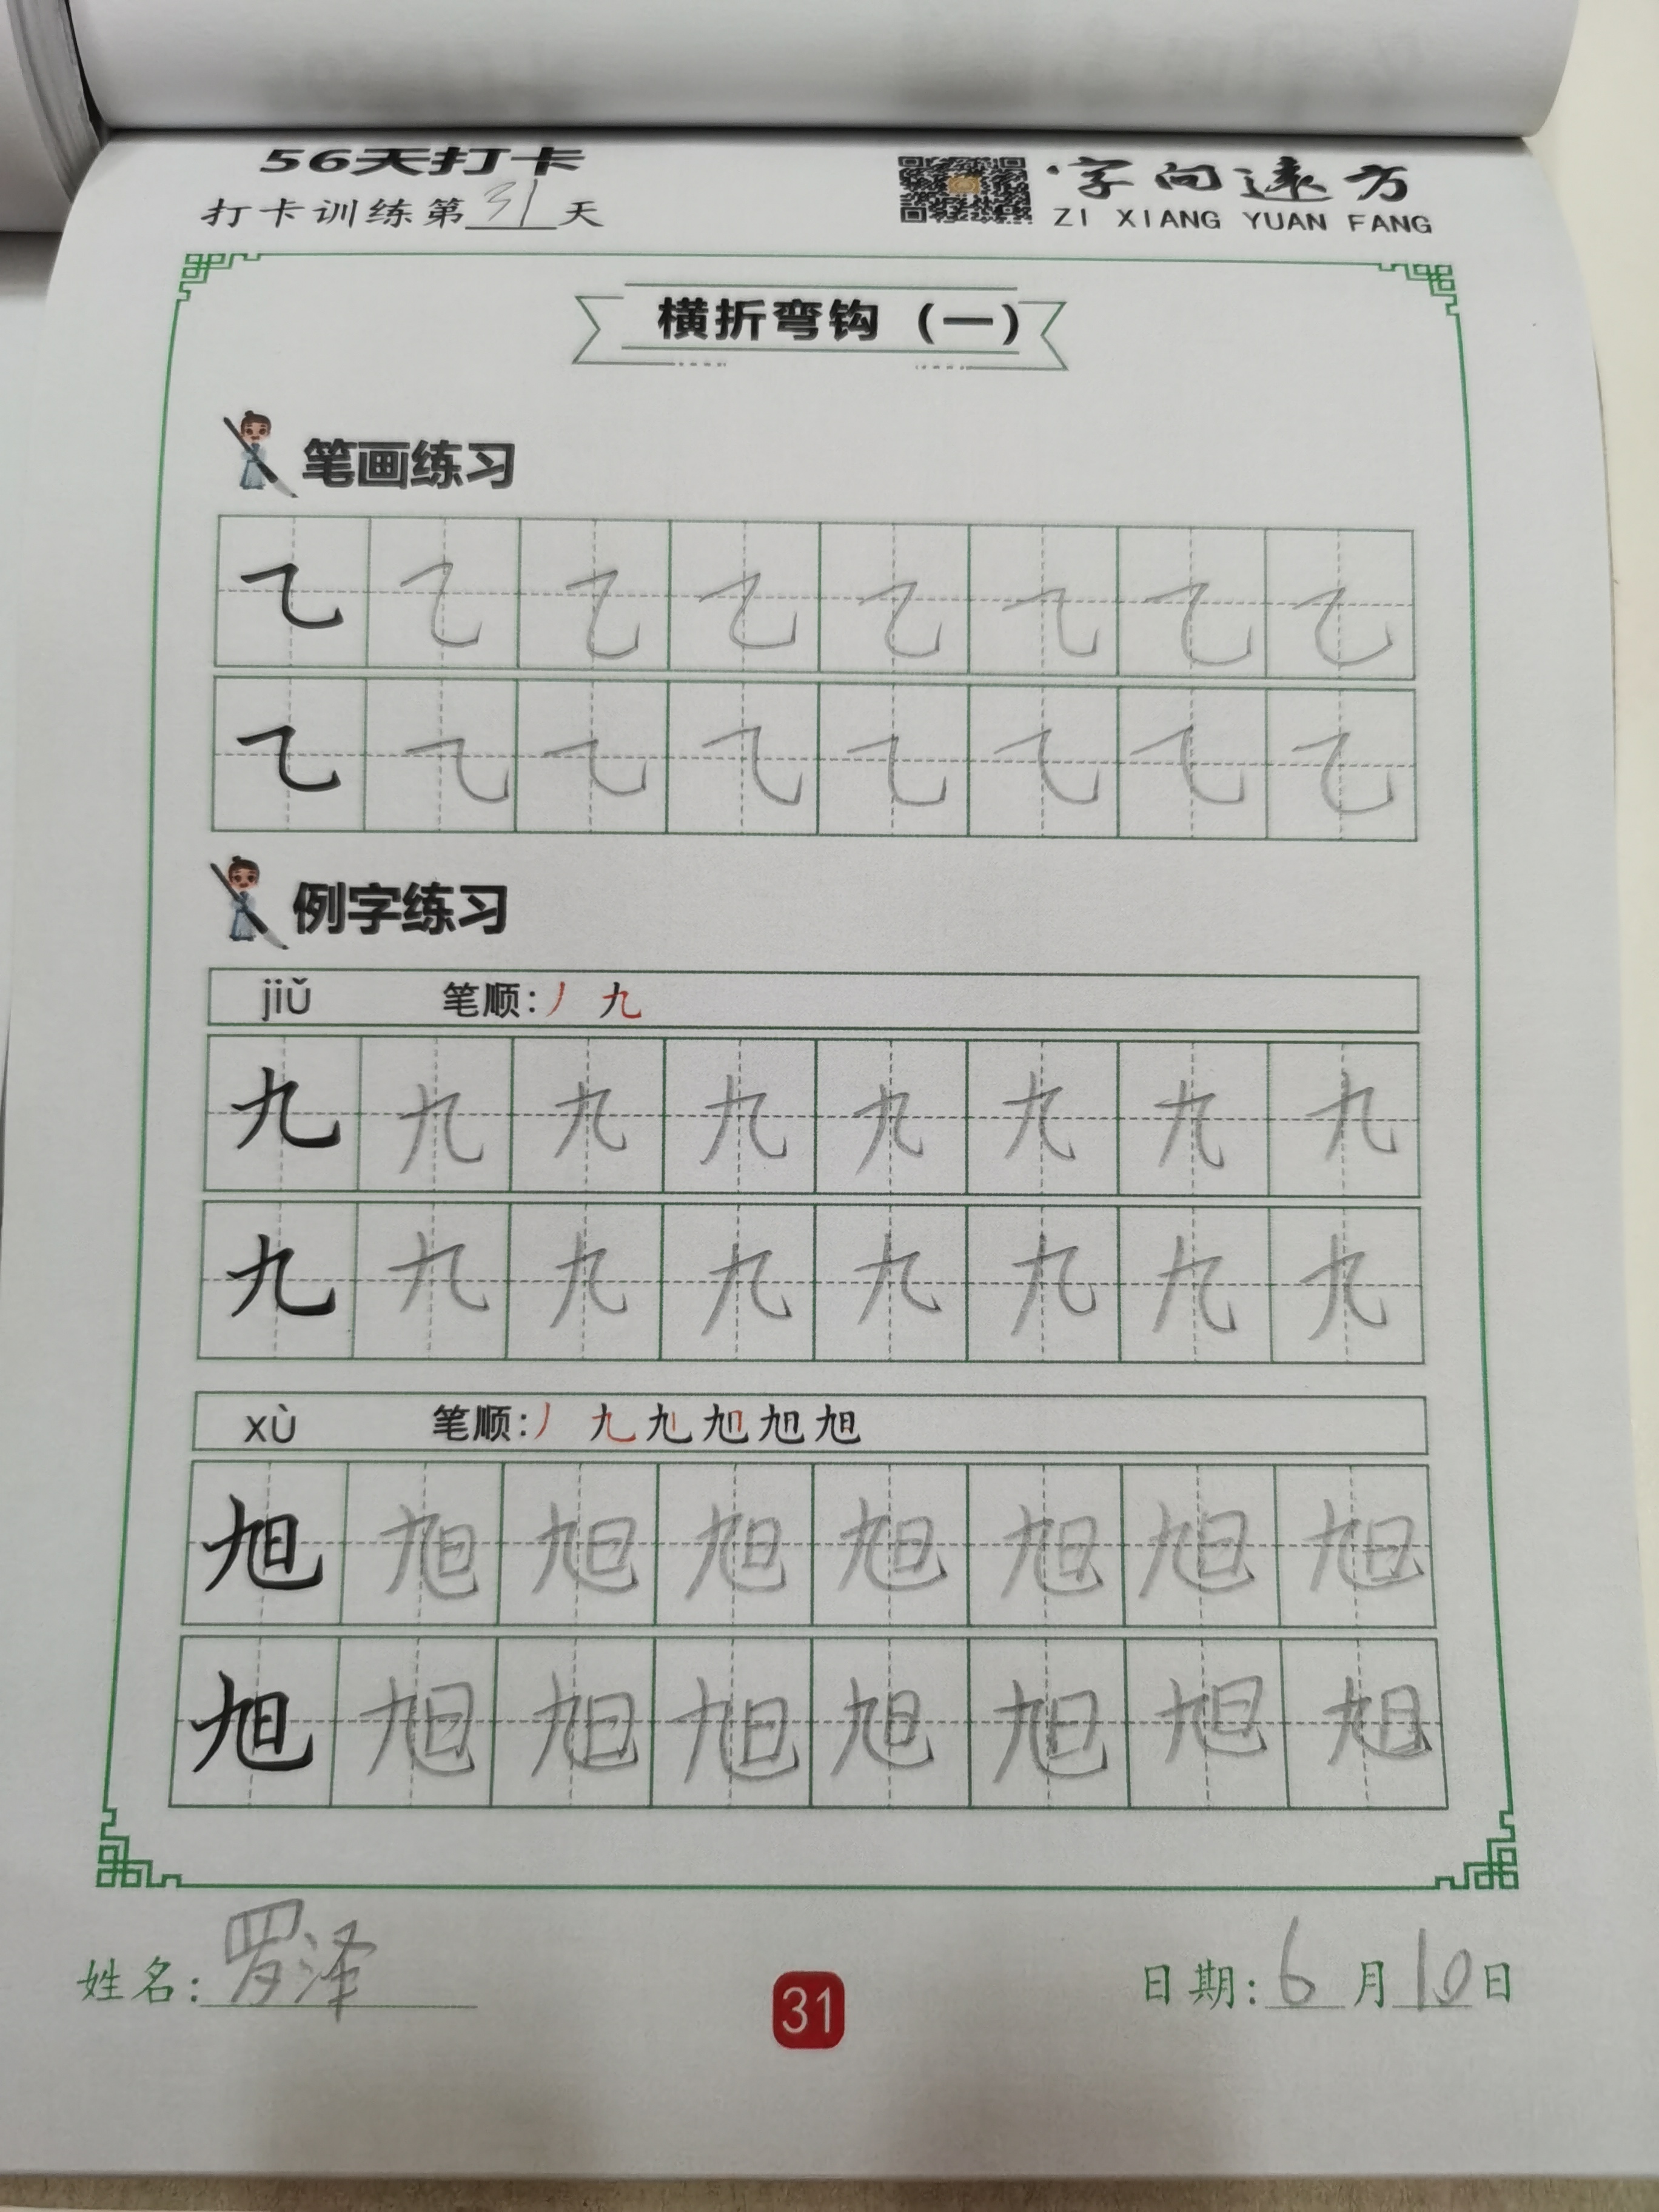 56天打卡
打卡训练第31天
字向远方
ZI XIANG YUAN FANG
横折弯钩（一）
笔画练习
乙 乙 乙 乙 乙 乙 乙 乙
乙 乙 乙 乙 乙 乙 乙 乙
例字练习
jiǔ 笔顺:丿 九
九 九 九 九 九 九 九 九
九 九 九 九 九 九 九 九
xù 笔顺:丿 九 旭 旭
旭 旭 旭 旭 旭 旭 旭 旭
旭 旭 旭 旭 旭 旭 旭 旭
姓名:罗泽
31
日期:6月10日